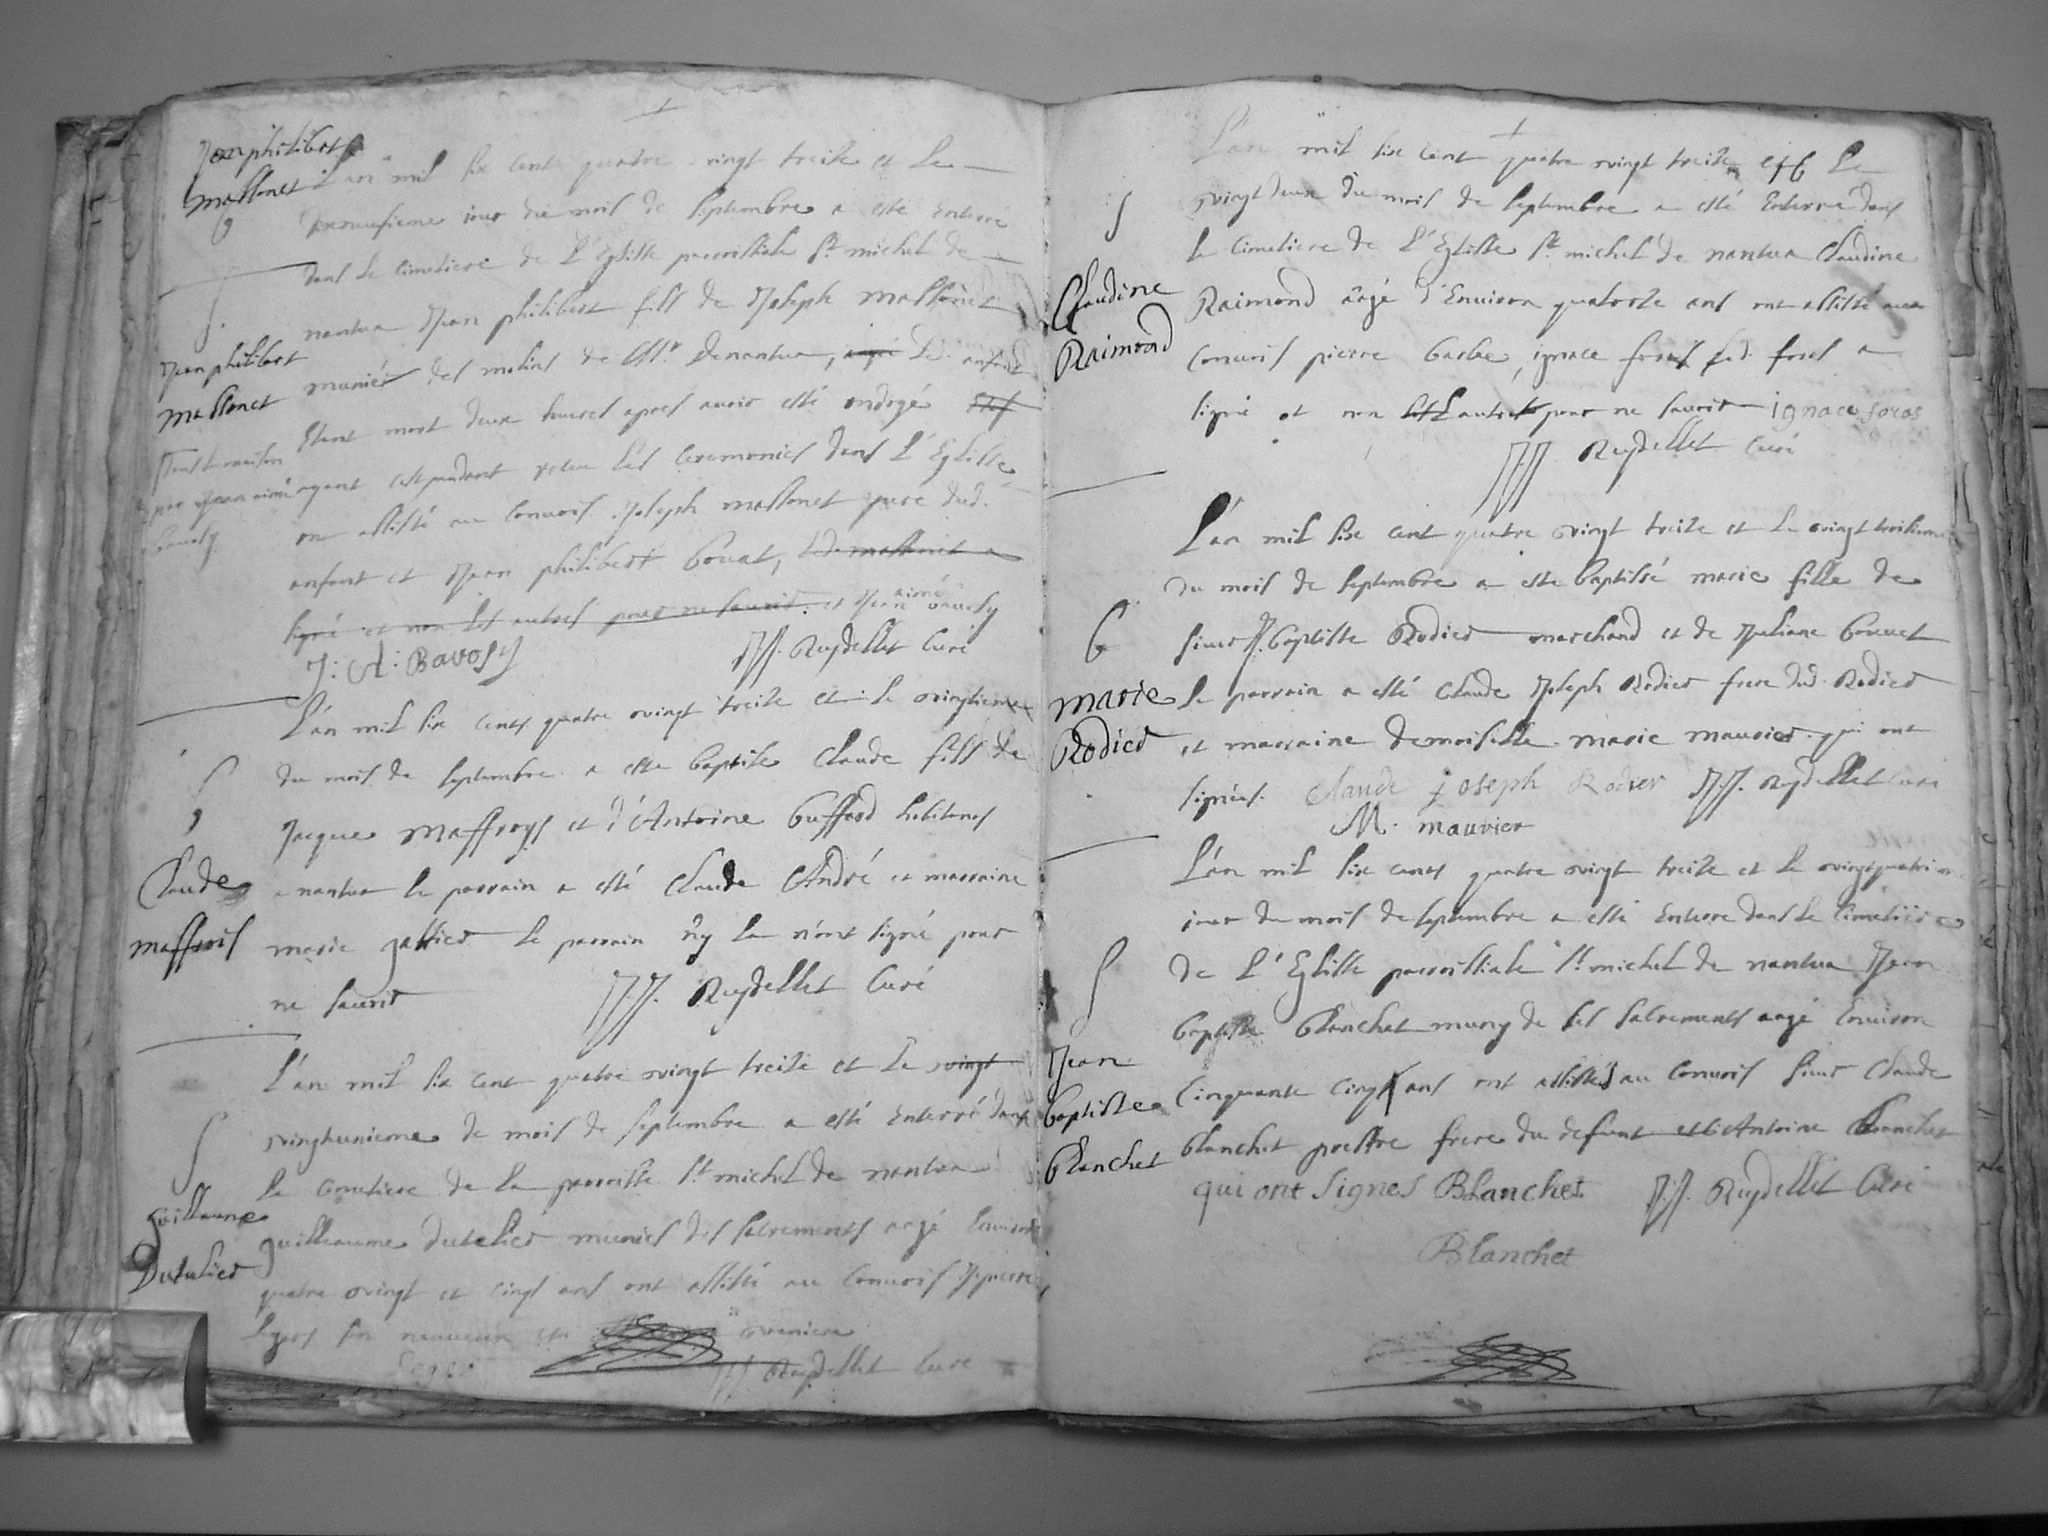 Jean philibert
Massonet
L'an mil six cent quatre vingt treize et le
jour du mois de septembre a esté enterré
dans le cimetiere de L'Eglisse parroissiale St michel de
nantua Jean philibert fils de Joseph massonet
Jean philibert
Massonet
munier des molins de Mr. de nantua, aagé led. enfant
Etant mort deux heures apres avoir esté ondoyé
dans la maison
par Jean aimé
Bavosy
ayant cependant receu les ceremonies dans L'Eglisse
on assisté au convois Joseph massonet pere dud.
enfant et Jean philibert bouat, led. massonet a
signé et non les autres pour ne savoir. et Jean aimé bavosy
J: A: Bavosy JJ. Reydellet Curé
L'an mil six cents quatre vingt treize et le vingtieme
du mois de septembre a esté baptise Claude fils de
Jacque Maffroys et d'Antoine buffard habitans
Claude
maffrois
a nantua le parrain a esté Claude André et marraine
marie le parrain ny la n'ont signé pour
ne savoir JJ. Reydellet Curé
L'an mil six cent quatre vingt treize et le vingt
vingtunieme de mois de septembre a esté Enterré dans
le cimetiere de la parroisse St michel de nantua
Guillaume
Dutelier
guilleaume dutelier munies des sacrements aagé Environ
quatre vingt et cinq ans ont assisté au convois pierre
Legros son et
JJ Reydellet Curé
L'an mil six cent quatre vingt treize et le
vingt deux du mois de septembre a esté Enterré dans
le cimetiere de L'Eglisse St michel de nantua Claudine
Claudine
Raimond
Raimond aagé d'Environ quatorze ans ont assisté aux
convois pierre barbe, ignace foras led. foras a
signé et non les autres pour ne savoir ignace foras
JJ. Reydellet Curé
L'an mil six cent quatre vingt treize et le vingt troisieme
du mois de septembre a este baptissé marie fille de
sieur J. baptiste Rodier marchand et de Juliane bouvet
marie
Rodier
le parrain a esté Claude Joseph Rodier frere dud. Rodier
et marraine demoiselle marie mauvier qui ont
signées. Claude joseph Rodier JJ. Reydellet Curé
M. mauvier
L'an mil six cents quatre vingt treize et le vingtquatrieme
jour du mois de septembre a esté Enterre dans le Cimetiere
de L'Eglisse parroissiale St michel de nantua Jean
Jean
baptiste
blanchet
baptiste blanchet muny de ses sacrements aagé Environ
Cinquante cinq ans ont assistés au convois sieur Claude
blanchet prestre frere du defunt et Antoine blanchet
qui ont Signes Blanchet JJ. Reydellet Curé
Blanchet